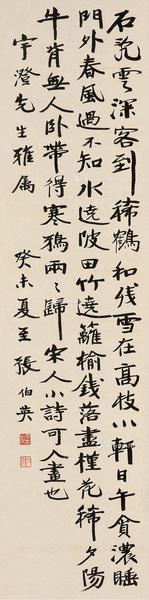 石凳雲深客到稀鶴和残雪在高枝小軒日午貪濃睡
門外春風過不知水遶陂田竹遶籬榆錢落盡槿花稀夕陽
牛背無人臥帶得寒鴉兩〻歸宋人小詩可入畫也
宇澄先生雅屬 癸未夏至張伯英